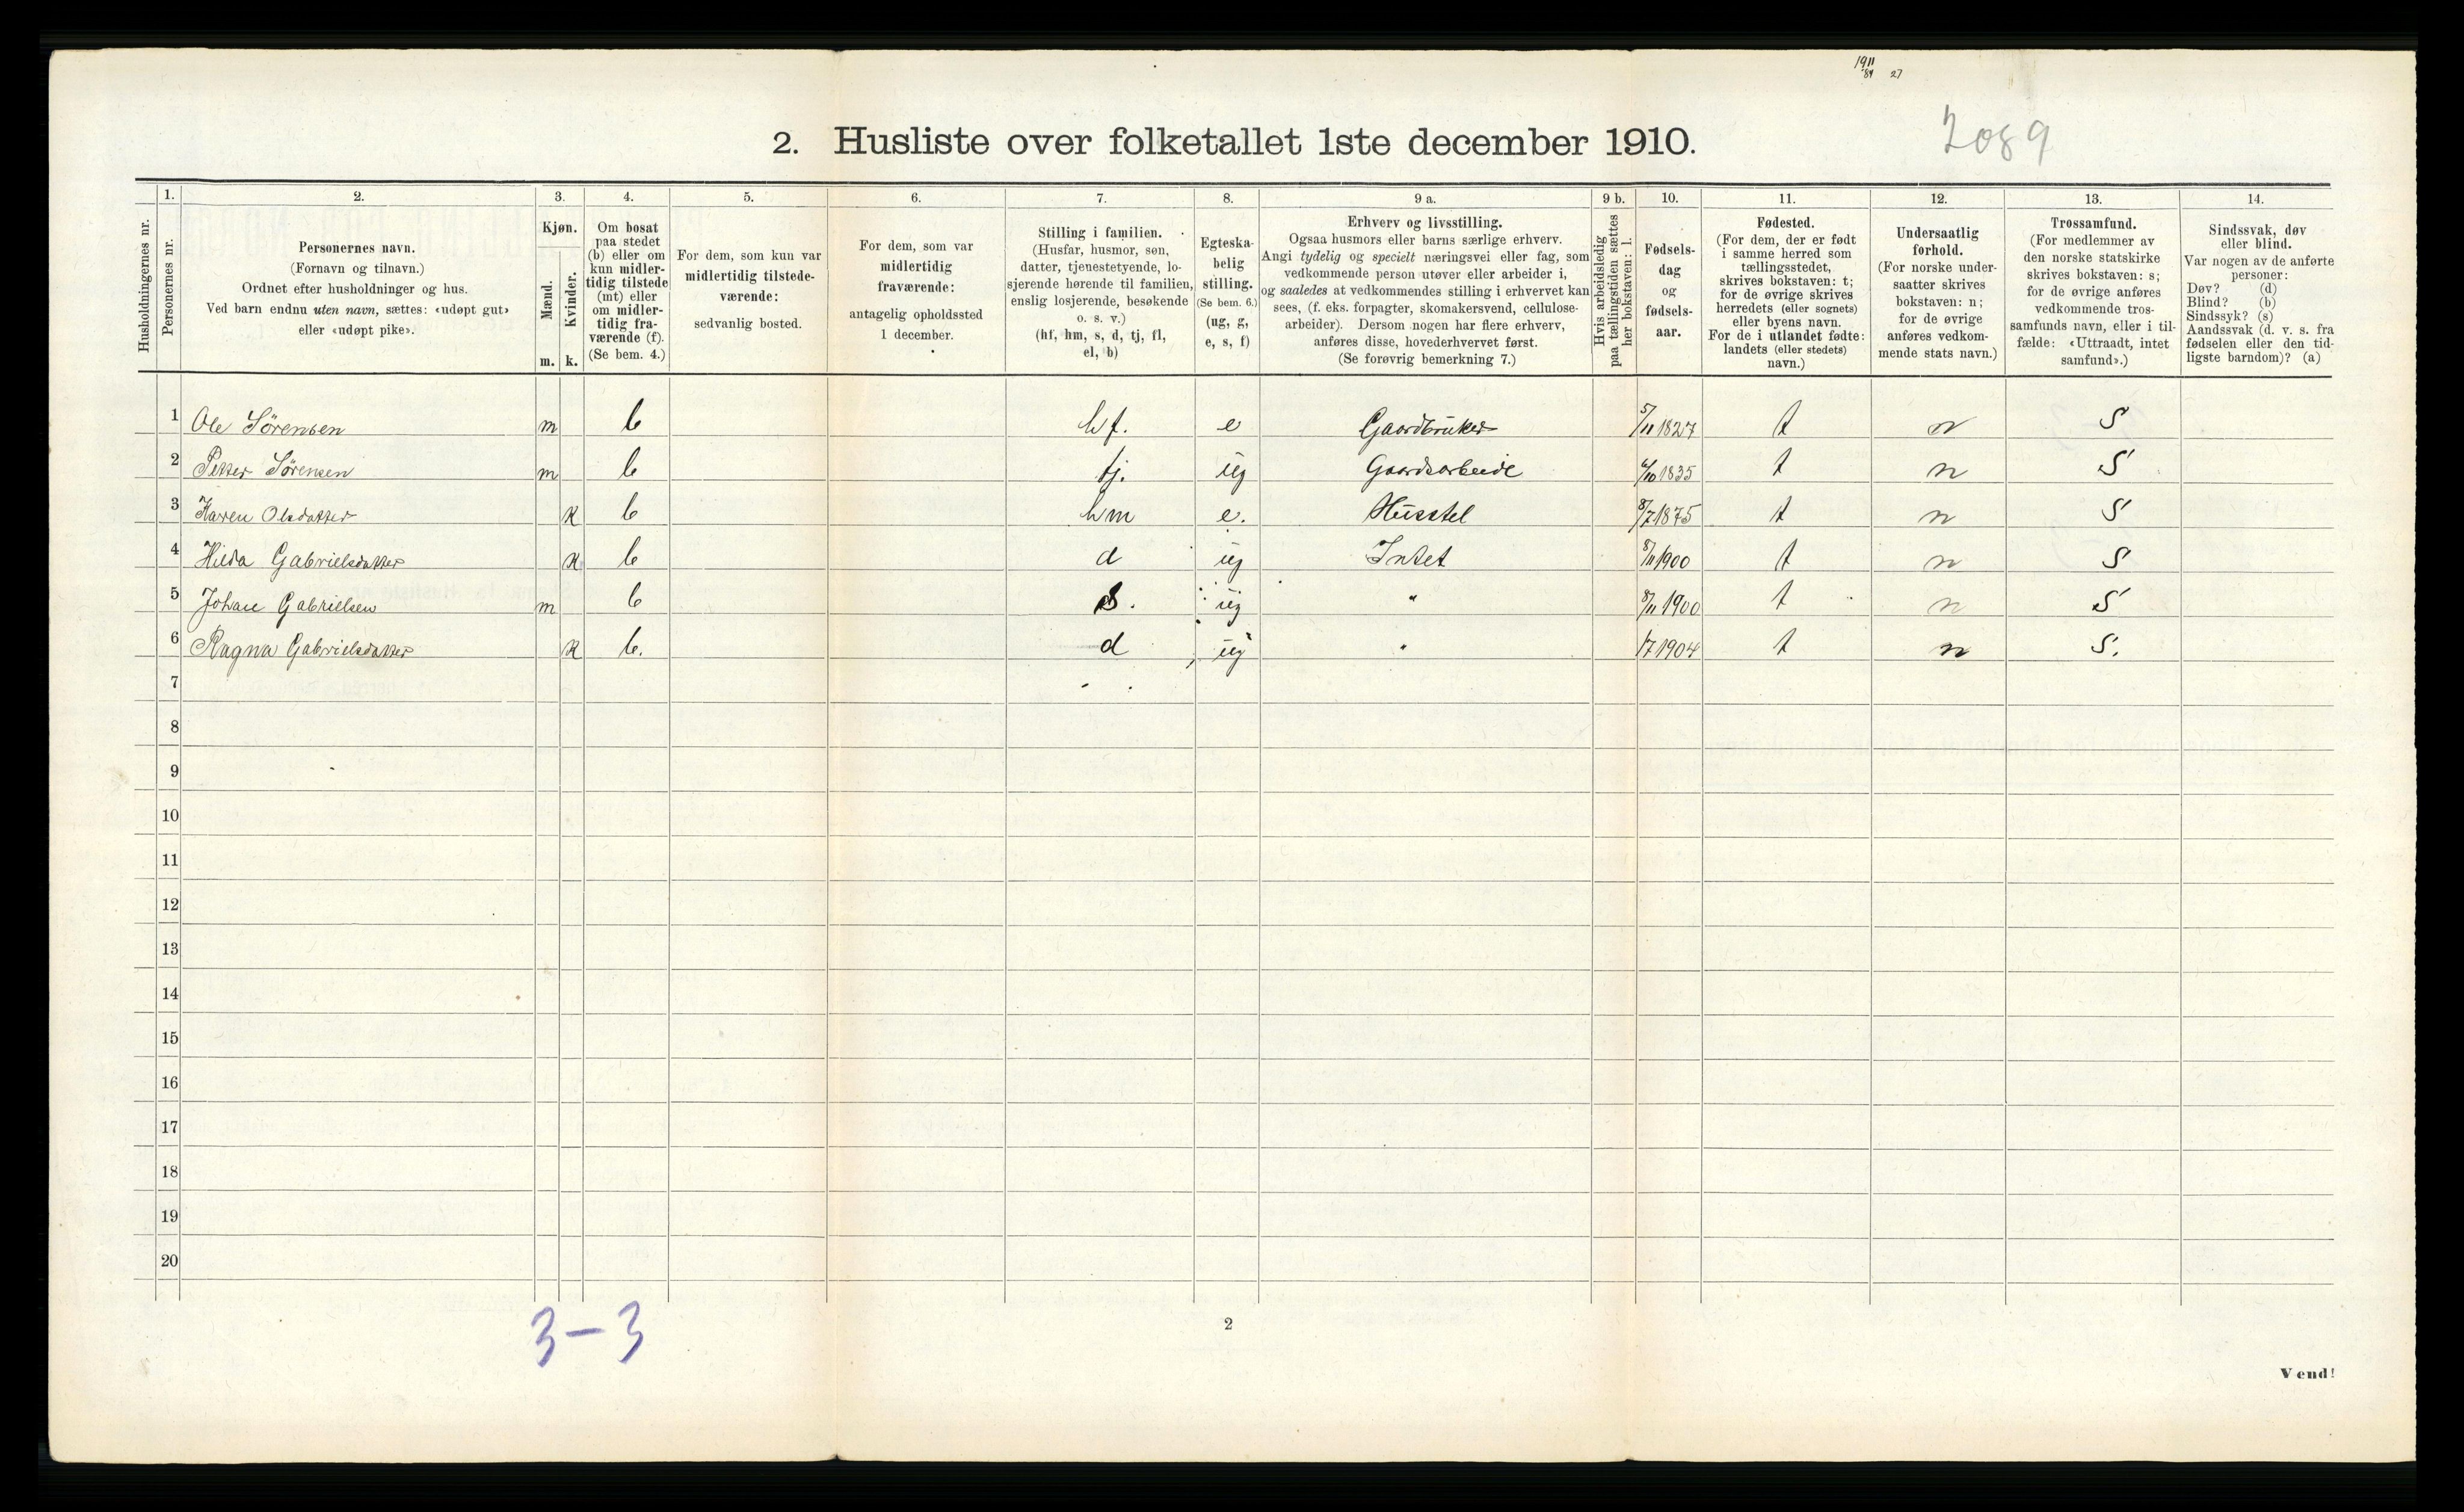 1911
27
2. Husliste over folketallet 1ste december 1910.
2089
Husholdningernes nr.
1. Personernes nr.
2. Personernes navn.
(Fornavn og tilnavn.)
Ordnet efter husholdninger og hus.
Ved barn endnu uten navn, sættes: «udøpt gut»
eller «udøpt pike».
3. Kjøn.
Mænd. m.
Kvinder. k.
4. Om bosat
paa stedet
(b) eller om
kun midler-
tidig tilstede
(mt) eller
om midler-
tidig fra-
værende (f).
(Se bem. 4.)
5. For dem, som kun var
midlertidig tilstede-
værende:
sedvanlig bosted.
6. For dem, som var
midlertidig
fraværende:
antagelig opholdssted
1 december.
7. Stilling i familien.
(Husfar, husmor, søn,
datter, tjenestetyende, lo-
sjerende hørende til familien,
enslig losjerende, besøkende
o. s. v.)
(hf, hm, s, d, tj, fl,
el, b)
8. Egteska-
belig
stilling.
(Se bem. 6.)
(ug, g,
e, s, f)
9 a. Erhverv og livsstilling.
Ogsaa husmors eller barns særlige erhverv.
Angi tydelig og specielt næringsvei eller fag, som
vedkommende person utøver eller arbeider i,
og saaledes at vedkommendes stilling i erhvervet kan
sees, (f. eks. forpagter, skomakersvend, cellulose-
arbeider). Dersom nogen har flere erhverv,
anføres disse, hovederhvervet først.
(Se forøvrig bemerkning 7.)
9 b. Hvis arbeidsledig
paa tællingstiden sættes
her bokstaven: l.
10. Fødsels-
dag
og
fødsels-
aar.
11. Fødested.
(For dem, der er født
i samme herred som
tællingsstedet,
skrives bokstaven: t;
for de øvrige skrives
herredets (eller sognets)
eller byens navn.
For de i utlandet fødte:
landets (eller stedets)
navn.)
12. Undersaatlig
forhold.
(For norske under-
saatter skrives
bokstaven: n;
for de øvrige
anføres vedkom-
mende stats navn.)
13. Trossamfund.
(For medlemmer av
den norske statskirke
skrives bokstaven: s;
for de øvrige anføres
vedkommende tros-
samfunds navn, eller i til-
fælde: «Uttraadt, intet
samfund».)
14. Sindssvak, døv
eller blind.
Var nogen av de anførte
personer:
Døv? (d)
Blind? (b)
Sindssyk? (s)
Aandssvak (d. v. s. fra
fødselen eller den tid-
ligste barndom)? (a)
1 Ole Sörensen m b hf. e Gaardbruker 5/11 1827 t n S
2 Petter Sörensen m b tj. ug Gaardsarbeide 6/10 1835 t n S
3 Karen Olsdatter k b hm e. Husstel 8/7 1875 t n S
4 Hilda Gabrielsdatter k b d ug Intet 8/11 1900 t n S
5 Johan Gabrielsen m b S. ug " 8/11 1900 t n S
6 Ragna Gabrielsdatter k b. d ug " 1/7 1904 t n S.
7
8
9
10
11
12
13
14
15
16
17
18
19
20
3-3
2
Vend!